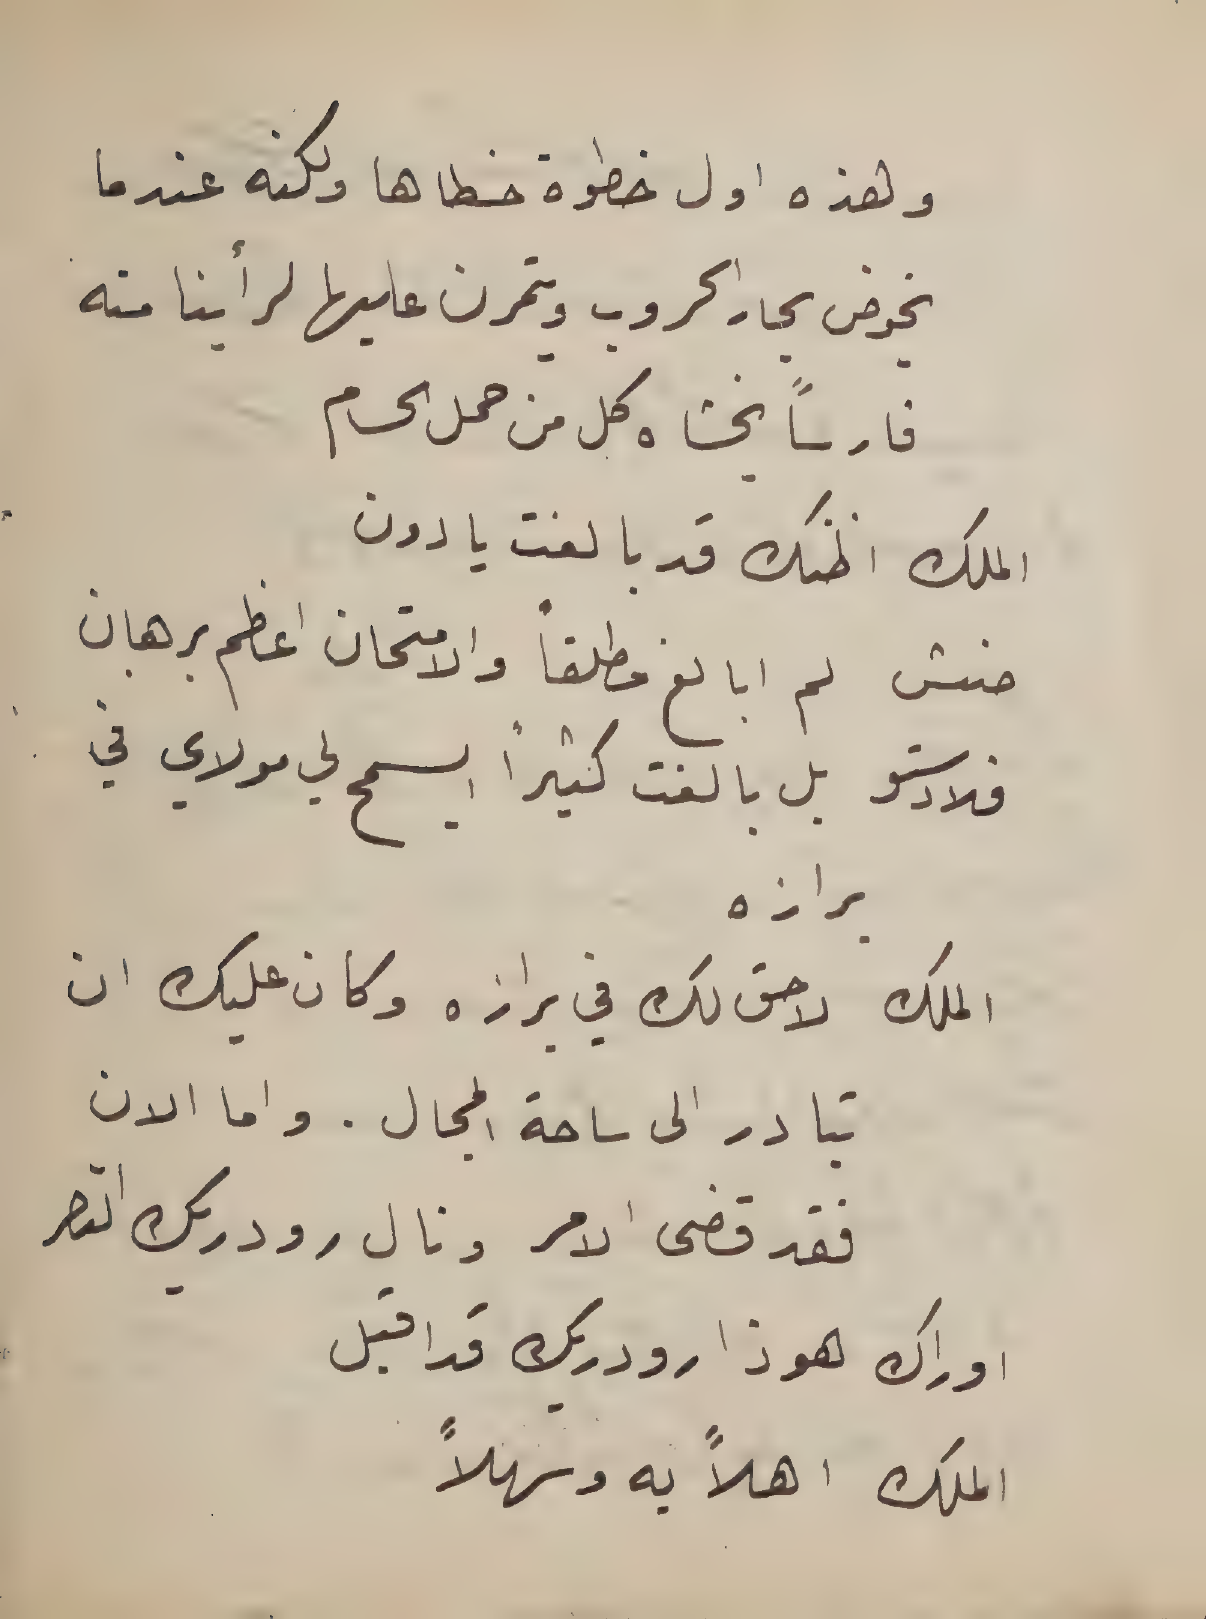 وهذه اول خطوة خطاها ولكنه عندما
يخوض بحار الحروب ويتمرن عليها لرأينا منه
فارساً يخشاه كل من حمل الحسام
الملك اظنك قد بالغت يا دون
صنش لم ابالغ مطلقاً والامتحان اعظم برهان
فلادستو بل بالغت كثيراً ايسمح لي مولاي في
برازه
الملك لا حق لك في برازه وكان عليك ان
تبادر الى ساحة المجال . واما الان
فقد قضى الامر ونال رودريك النصر
اوراك هوذا رودريك قد اقبل
الملك اهلاً به وسهلاً